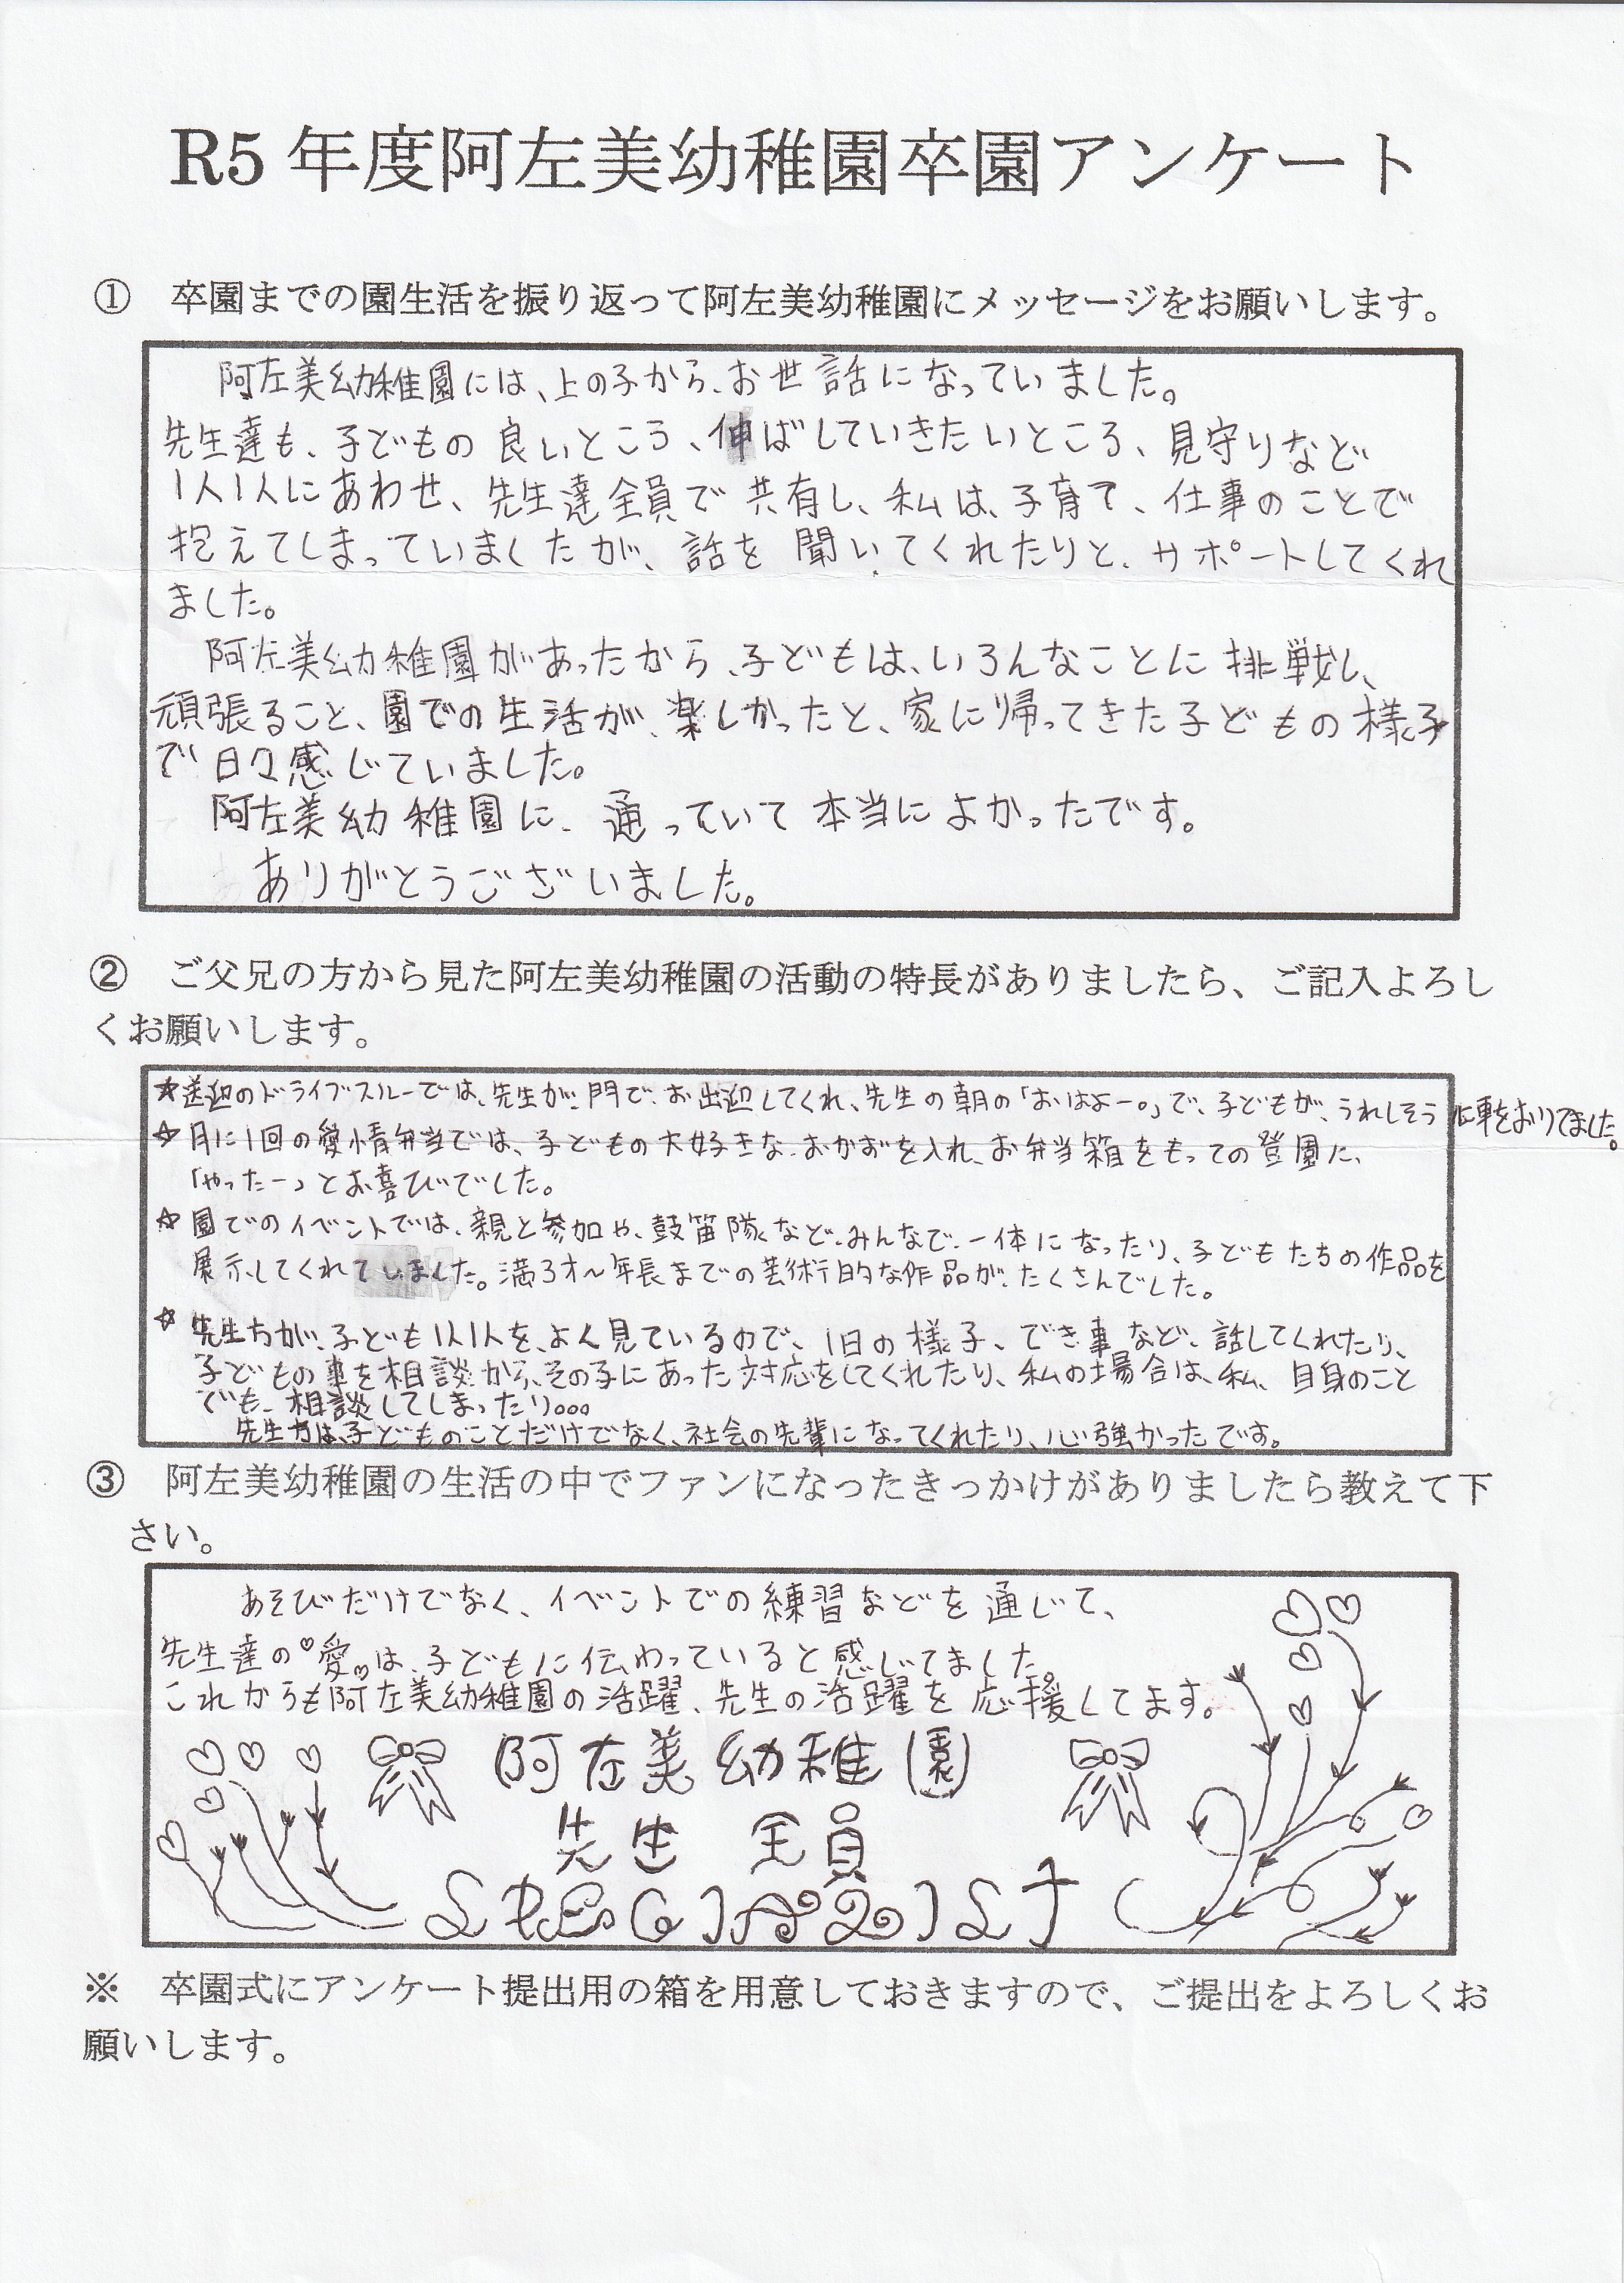 R5年度阿左美幼稚園卒園アンケート
①　卒園までの園生活を振り返って阿左美幼稚園にメッセージをお願いします。
阿左美幼稚園には、上の子から、お世話になっていました。
先生達も、子どもの良いところ、伸ばしていきたいところ、見守りなど
1人1人にあわせ、先生達全員で共有し、私は、子育て、仕事のことで
抱えてしまっていましたが、話を聞いてくれたりと、サポートしてくれ
ました。
阿左美幼稚園があったから、子どもは、いろんなことに挑戦し、
頑張ること、園での生活が、楽しかったと、家に帰ってきた子どもの様子
で日々感じていました。
阿左美幼稚園に、通っていて本当によかったです。
ありがとうございました。
②　ご父兄の方から見た阿左美幼稚園の活動の特長がありましたら、ご記入よろし
くお願いします。
☆送迎のドライブスルーでは、先生が、門で、お出迎してくれ、先生の朝の「おはよー。」で、子どもが、うれしそうに車をおりてました。
☆月に1回の愛情弁当では、子どもの大好きな、おかずを入れ、お弁当箱をもっての登園に、
「やったー」とお喜びでした。
☆園でのイベントでは、親と参加や、鼓笛隊など、みんなで、一体になったり、子どもたちの作品を
展示してくれていました。満3才～年長までの芸術的な作品が、たくさんでした。
☆先生ちが、子ども1人1人を、よく見ているので、1日の様子、でき事など、話してくれたり、
子どもの事を相談から、その子にあった対応をしてくれたり、私の場合は、私、自身のこと
でも、相談してしまったり。。。
先生方は、子どものことだけでなく、社会の先輩になってくれたり、心強かったです。
③　阿左美幼稚園の生活の中でファンになったきっかけがありましたら教えて下
さい。
あそびだけでなく、イベントでの練習などを通じて、
先生達の♡愛♡は、子どもに伝わっていると感じてました。
これからも阿左美幼稚園の活躍、先生の活躍を応援してます。
阿左美幼稚園
先生　全員
SPECIALIST
※　卒園式にアンケート提出用の箱を用意しておきますので、ご提出をよろしくお
願いします。